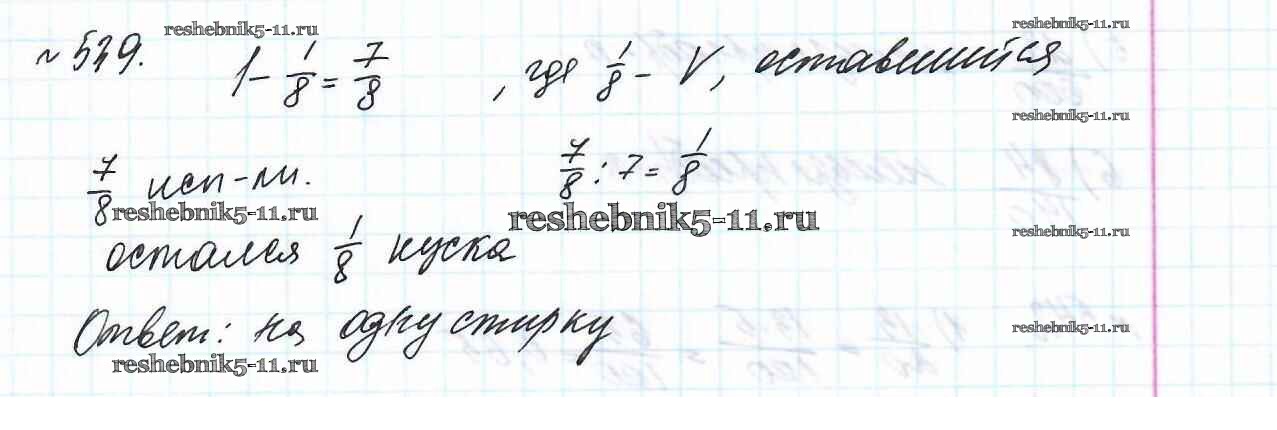 reshebnik5-11.ru reshebnik5-11.ru
№ 539. 1 - 1/8 = 7/8, где 1/8 - V, оставшийся
reshebnik5-11.ru
7/8 исп-ли. 7/8 : 7 = 1/8
reshebnik5-11.ru reshebnik5-11.ru reshebnik5-11.ru
остался 1/8 куска
Ответ: на одну стирку
reshebnik5-11.ru
reshebnik5-11.ru